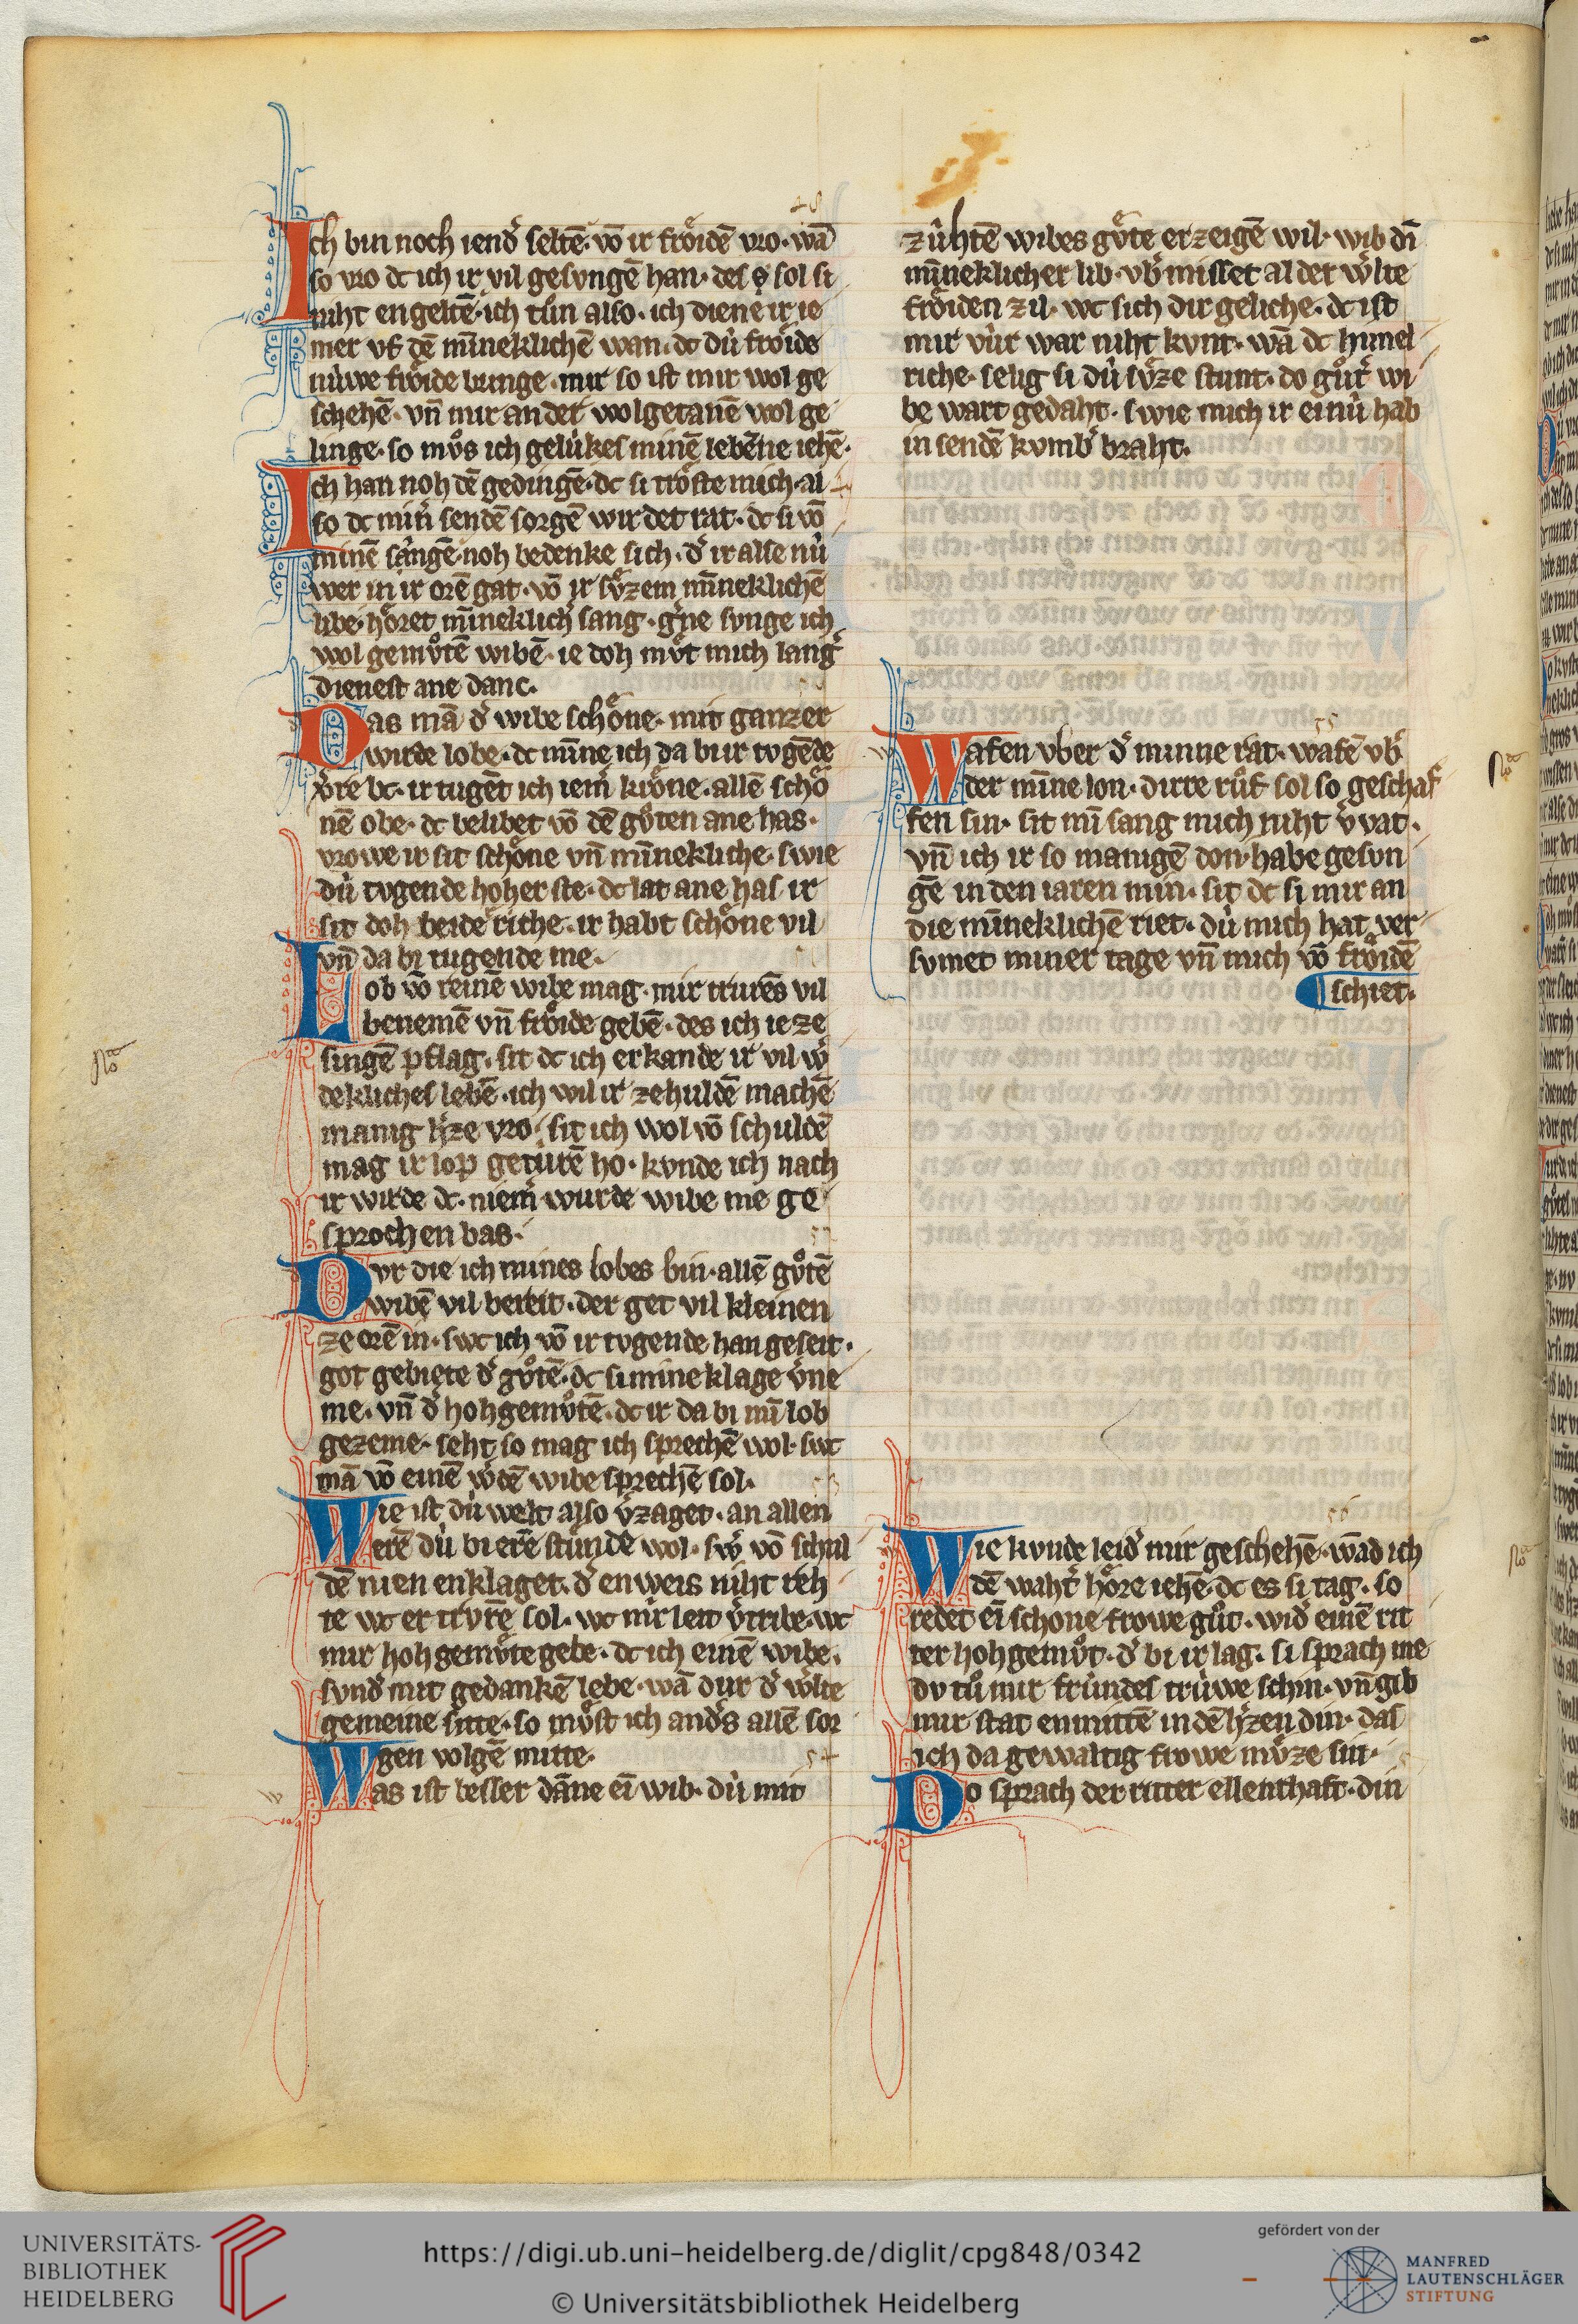 48
Ich bin noch iend͛ seltē· vō ir froͤidē vro· wā
so vro dc ich ir vil gesvngē han· des sol si
niht engeltē· ich tůn also· ich diene ir ie
mer vf dē mīneklichē wan· dc dú froͤide
núwe froͤide bringe· mir so ist mir wol ge
schehē· vn̄ mir an der wolgetanē wol ge
linge· so mv̊s ich gelúkes minē lebēne iehē·
Ich han noh dē gedingē· dc si troͤste mich· al
so dc min͛ sendē sorgē wirdet rat· dc si vō
minē sange noh bedenke sich· d͛ ir alse nú
wer in ir orē gat· vō ir sv̊zem mīneklichē
libe· hoͤret mīneklich͛ sang· g͛ne synge ich
wol gemv̊tē wibē· ie doh mv̊t mich lang͛
dienest ane danc·
Das mā d͛ wibe schoͤne· mit ganzer
wirde lobe· dc mīne ich da bi ir tvgēde
v͛re bc· ir tugēt ich iem͛ kroͤne· allē schoͤ
nē obe· dc belibet vō dē gv̊ten ane has·
vrowe ir sit schoͤne vn̄ mīnekliche· swie
dú tvgende hoher ste· dc lat ane has ir
sit doh beid͛ riche· ir habt schoͤne vil
vn̄ da bi tugende me·
Lob vō reinē wibe mag· mir trurēs vil
benemē vn̄ froͤide gebē· des ich ie ze
singē pflag· sit dc ich erkande ir vil w͛
dekliches lebē· ich wil ir ze huldē machē
manig h͛ze vro· sit ich wol vō schuldē
mag ir lop getúrē ho· kvnde ich nach
ir wirde dc· niem͛ wurde wibe me ge
sprochen bas·
Dvr die ich mines lobes bin· allē gv̊tē
wibē vil bereit· der get vil kleinen
ze orē in· swc ich vō ir tvgende han geseit·
got gebiete d͛ gv̊tē· dc si mine klage v͛ne
me· vn̄ d͛ hohgemv̊tē· dc ir da bi mī lob
gezeme· seht so mag ich sprechē wol· swc
mā vō einē w͛dē wibe sprechē sol·
53
Wie ist dú welt also v͛zaget· an allen
erē dú bi erē stúndē wol· sw͛ vō schul
dē nien enklaget· d͛ enweis niht reh
te wc er trvrē sol· wc mir leit v͛tribe· wc
mir hohgemv̊te gebe· dc ich einē wibe·
svnd͛ mit gedankē lebe· wā dur d͛ w͛lte
gemeine sitte· so mv̊st ich and͛s allē sor
gen volgē mitte·
54
Was ist besser dāne eī wib· dú mit
zúhtē wibes gv̊te erzeigē wil· wib dī
mīneklicher lib· vb͛ misset al der w͛lte
froͤiden zil· wc sich dir geliche· dc ist
mir vúr war niht kvnt· wā dc himel
riche· selig si dú sv̊ze stunt· do gůt͛ wi
be wart gedaht· swie mich ir einú hab
in sendē kvmb͛ braht·
55
Wafen vber d͛ minne rat· wafē vb͛
der mīne lon· dirre růf sol so geschaf
fen sin· sit mī sang mich niht v͛vat·
vn̄ ich ir so manigē don· habe gesvn
gē in den iaren min· sit dc si mir an
die mīneklichē riet· dú mich hat ver
svmet miner tage vn̄ mich vō froͤidē
schiet·
56
Wie kvnde leid͛ mir geschehē· wād ich
dē waht͛ hoͤre iehē· dc es si tag· so
redet eī schone frowe gůt· wid͛ einē rit
ter hohgemv̊t· d͛ bi ir lag· si sprach me
dv tů mir frúndes trúwe schin· vn̄ gib
mir stat enmittē in dē h͛zen din· das
ich da gewaltig frowe mv̊ze sin·
Do sprach der ritter ellenthaft· din
UNIVERSITÄTS-
BIBLIOTHEK
HEIDELBERG
https://digi.ub.uni-heidelberg.de/diglit/cpg848/0342
© Universitätsbibliothek Heidelberg
gefördert von der
MANFRED
LAUTENSCHLÄGER
STIFTUNG